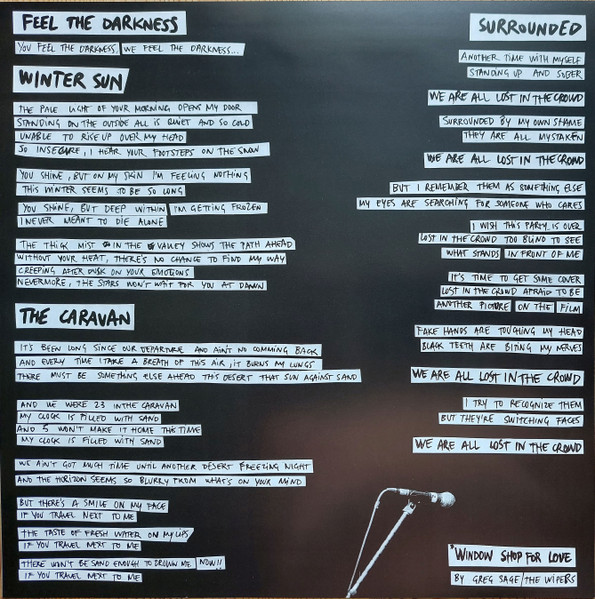 FEEL THE DARKNESS
YOU FEEL THE DARKNESS, WE FEEL THE DARKNESS...
WINTER SUN
THE PALE LIGHT OF YOUR MORNING OPENS MY DOOR
STANDING ON THE OUTSIDE ALL IS QUIET AND SO COLD
UNABLE TO RISE UP OVER MY HEAD
SO INSECURE, I HEAR YOUR FOOTSTEPS ON THE SNOW
YOU SHINE, BUT ON MY SKIN I'M FEELING NOTHING
THIS WINTER SEEMS TO BE SO LONG
YOU SHINE, BUT DEEP WITHIN I'M GETTING FROZEN
I NEVER MEANT TO DIE ALONE
THE THICK MIST IN THE VALLEY SHOWS THE PATH AHEAD
WITHOUT YOUR HEAT, THERE'S NO CHANCE TO FIND MY WAY
CREEPING AFTER DUSK ON YOUR EMOTIONS
NEVERMORE, THE STARS WON'T WAIT FOR YOU AT DAWN
THE CARAVAN
IT'S BEEN LONG SINCE OUR DEPARTURE AND AIN'T NO COMMING BACK
AND EVERY TIME I TAKE A BREATH OF THIS AIR, IT BURNS MY LUNGS
THERE MUST BE SOMETHING ELSE AHEAD THIS DESERT THAT SUN AGAINST SAND
AND WE WERE 23 IN THE CARAVAN
MY CLOCK IS FILLED WITH SAND
AND 5 WON'T MAKE IT HOME THIS TIME
MY CLOCK IS FILLED WITH SAND
WE AIN'T GOT MUCH TIME UNTIL ANOTHER DESERT FREEZING NIGHT
AND THE HORIZON SEEMS SO BLURRY FROM WHAT'S ON YOUR MIND
BUT THERE'S A SMILE ON MY FACE
IF YOU TRAVEL NEXT TO ME
THE TASTE OF FRESH WATER ON MY LIPS
IF YOU TRAVEL NEXT TO ME
THERE WON'T BE SAND ENOUGH TO DROWN ME NOW!!
IF YOU TRAVEL NEXT TO ME
SURROUNDED
ANOTHER TIME WITH MYSELF
STANDING UP AND SOBER
WE ARE ALL LOST IN THE CROWD
SURROUNDED BY MY OWN SHAME
THEY ARE ALL MYSTAKEN
WE ARE ALL LOST IN THE CROWD
BUT I REMEMBER THEM AS SOMETHING ELSE
MY EYES ARE SEARCHING FOR SOMEONE WHO CARES
I WISH THIS PARTY IS OVER
LOST IN THE CROWD TOO BLIND TO SEE
WHAT STANDS IN FRONT OF ME
IT'S TIME TO GET SOME COVER
LOST IN THE CROWD AFRAID TO BE
ANOTHER PICTURE ON THE FILM
FAKE HANDS ARE TOUCHING MY HEAD
BLACK TEETH ARE BITING MY NERVES
WE ARE ALL LOST IN THE CROWD
I TRY TO RECOGNIZE THEM
BUT THEY'RE SWITCHING FACES
WE ARE ALL LOST IN THE CROWD
"WINDOW SHOP FOR LOVE"
BY GREG SAGE/THE WIPERS